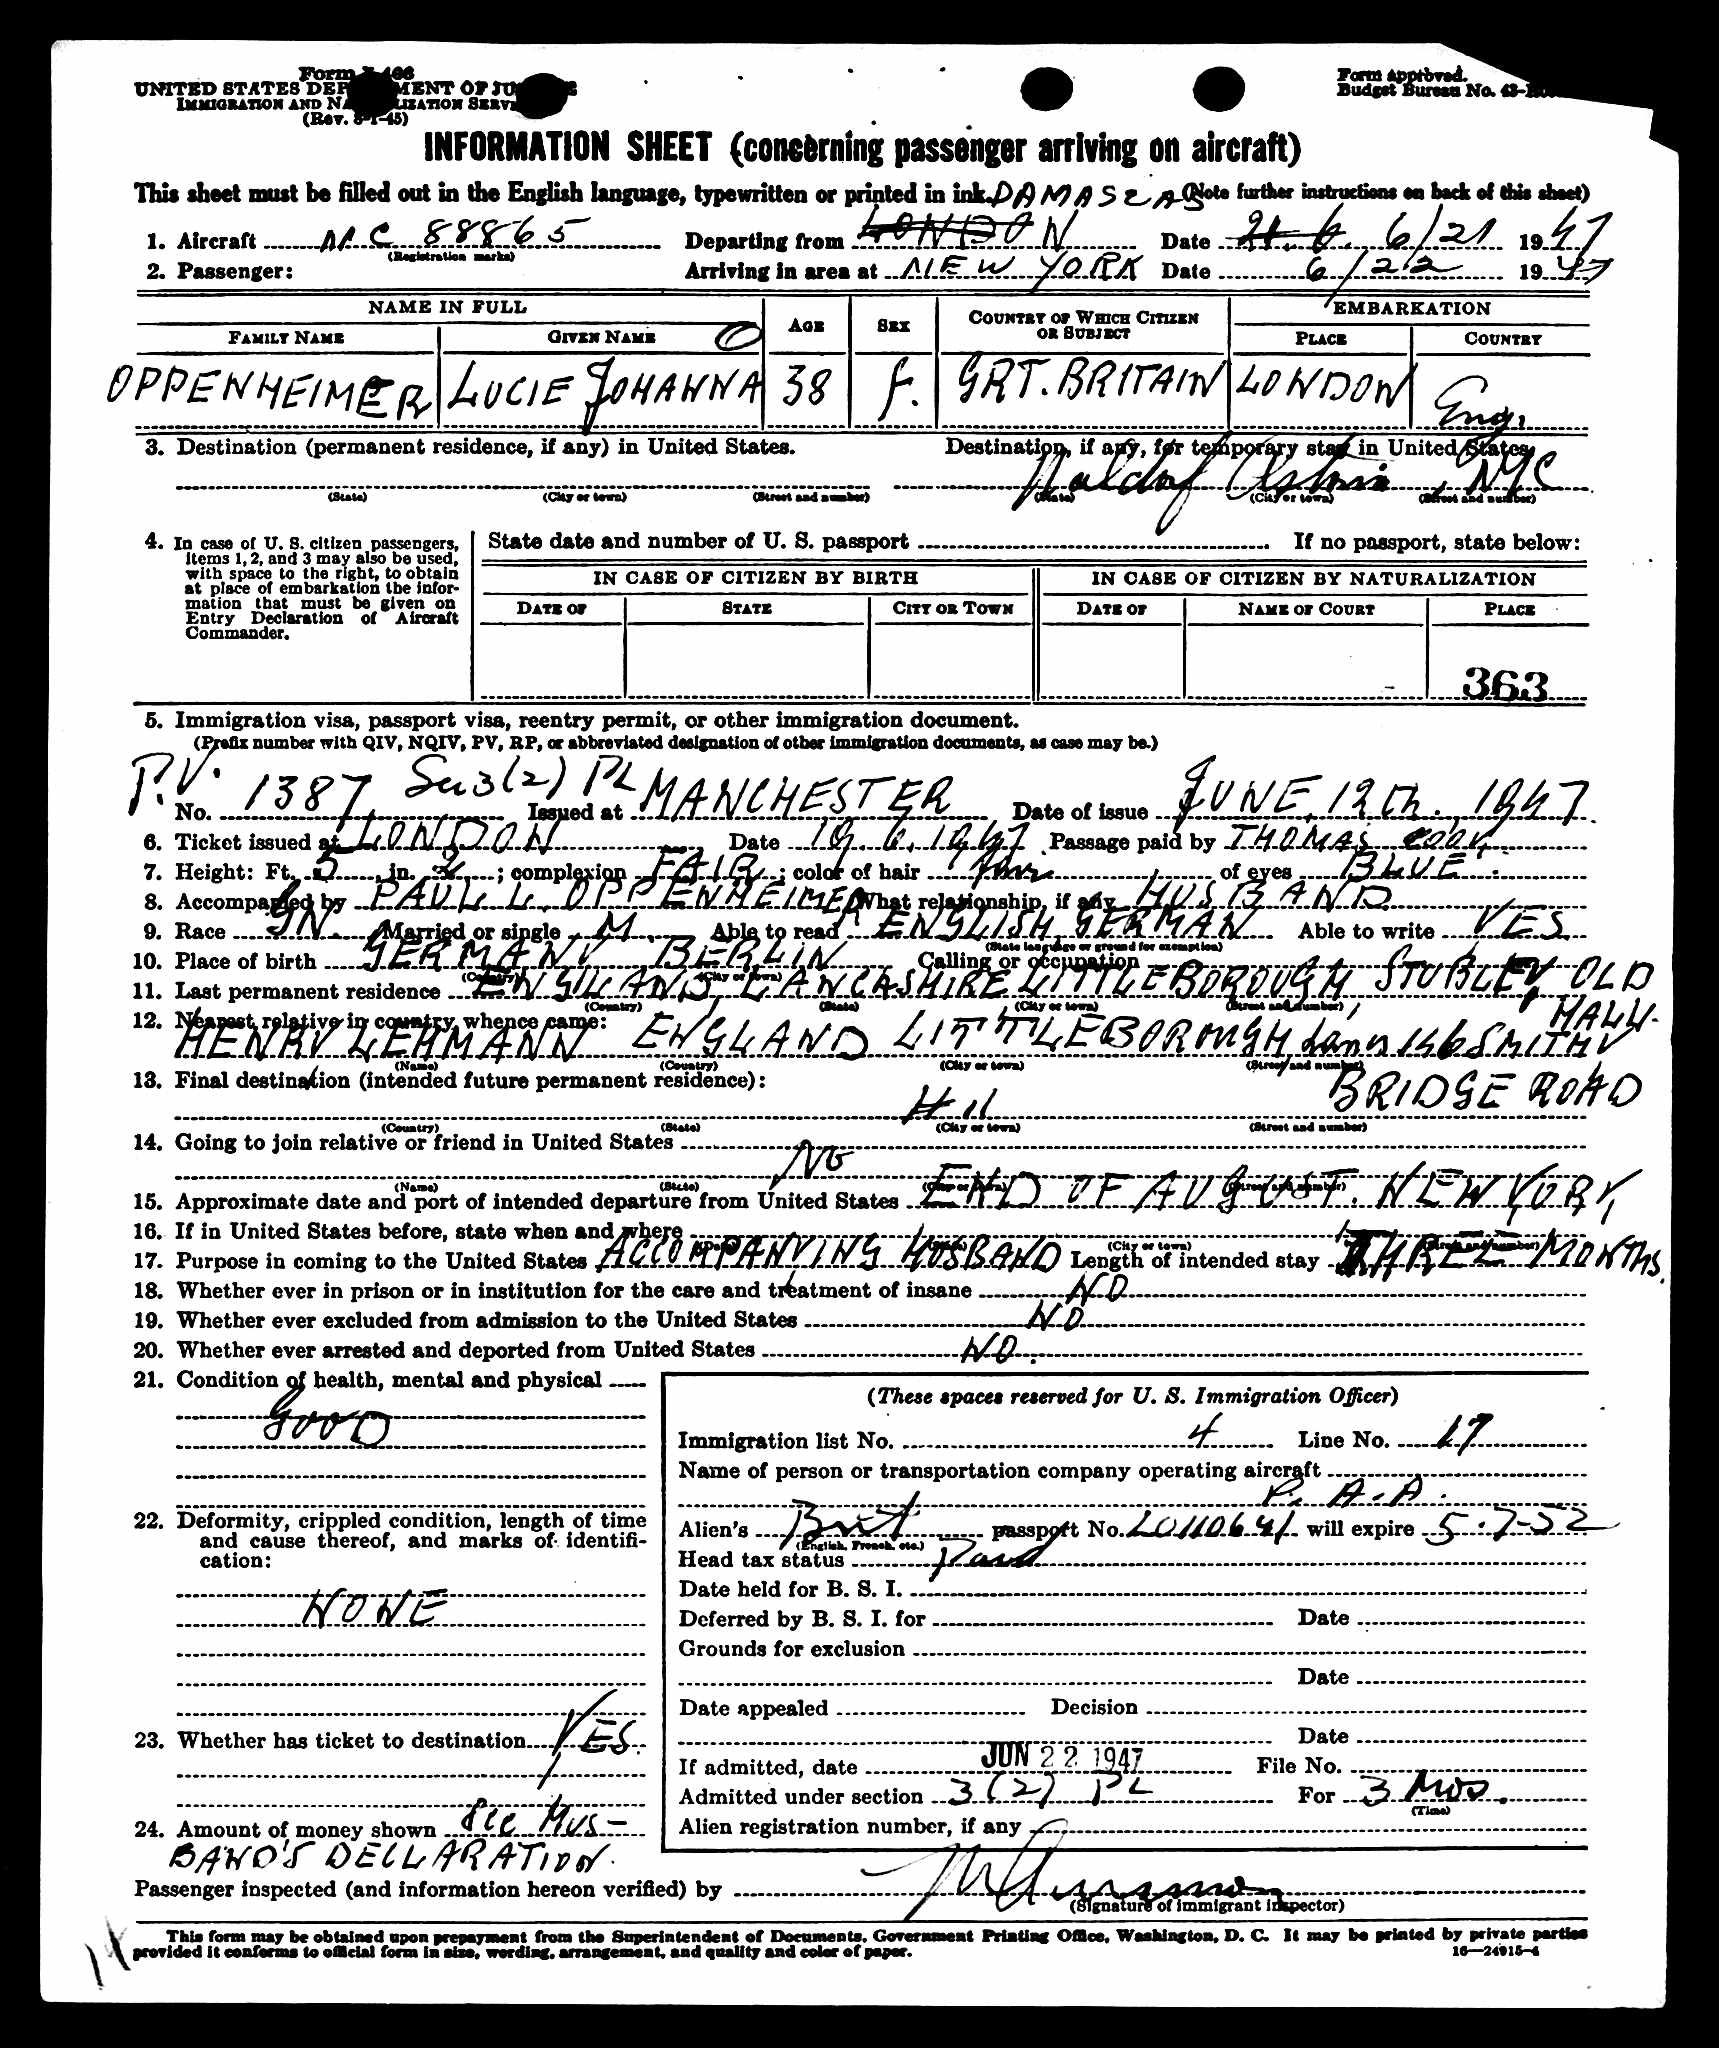 Form
UNITED STATES DEPARTMENT OF JUSTICE
IMMIGRATION AND NATURALIZATION SERVICE
(Rev. 8-1-45)
Form approved.
Budget Bureau No. 43-
INFORMATION SHEET (concerning passenger arriving on aircraft)
This sheet must be filled out in the English language, typewritten or printed in ink. (Note further instructions on back of this sheet)
DAMASCAS
1. Aircraft NC 88865 Departing from LONDON Date 21.6. 6/21 1947
(Registration marks)
2. Passenger: Arriving in area at NEW YORK Date 6/22 1947
NAME IN FULL AGE SEX COUNTRY OF WHICH CITIZEN OR SUBJECT EMBARKATION
FAMILY NAME GIVEN NAME PLACE COUNTRY
OPPENHEIMER LUCIE JOHANNA 38 f. GRT. BRITAIN LONDON Eng.
3. Destination (permanent residence, if any) in United States. Destination, if any, for temporary stay in United States
Waldorf Astoria, NYC
(State) (City or town) (Street and number) (State) (City or town) (Street and number)
4. In case of U. S. citizen passengers, items 1, 2, and 3 may also be used, with space to the right, to obtain at place of embarkation the information that must be given on Entry Declaration of Aircraft Commander.
State date and number of U. S. passport If no passport, state below:
IN CASE OF CITIZEN BY BIRTH IN CASE OF CITIZEN BY NATURALIZATION
DATE OF STATE CITY OR TOWN DATE OF NAME OF COURT PLACE
363
5. Immigration visa, passport visa, reentry permit, or other immigration document.
(Prefix number with QIV, NQIV, PV, RP, or abbreviated designation of other immigration documents, as case may be.)
P.V. No. 1387 Sec 3(2) PL Issued at MANCHESTER Date of issue JUNE, 12th. 1947
6. Ticket issued at LONDON Date 19.6.1947 Passage paid by THOMAS COOK
7. Height: Ft. 5 in. 2 ; complexion FAIR ; color of hair of eyes BLUE.
8. Accompanied by PAUL L. OPPENHEIMER What relationship, if any HUSBAND
9. Race GN. Married or single M. Able to read ENGLISH, GERMAN Able to write YES
(State language or ground for exemption)
10. Place of birth GERMANY BERLIN Calling or occupation
(Country) (City or town)
11. Last permanent residence ENGLAND, LANCASHIRE LITTLEBOROUGH STUBLEY OLD HALL.
(Country) (State) (City or town) (Street and number)
12. Nearest relative in country whence came:
HENRY LEHMANN ENGLAND LITTLEBOROUGH Lancs 146 SMITHY BRIDGE ROAD
(Name) (Country) (City or town) (Street and number)
13. Final destination (intended future permanent residence):
(Country) (State) (City or town) (Street and number)
14. Going to join relative or friend in United States
No
(Name) (State) (City or town) (Street and number)
15. Approximate date and port of intended departure from United States END OF AUGUST. NEW YORK
16. If in United States before, state when and where
(City or town) (Street and number)
17. Purpose in coming to the United States ACCOMPANYING HUSBAND Length of intended stay THREE MONTHS.
18. Whether ever in prison or in institution for the care and treatment of insane NO
19. Whether ever excluded from admission to the United States NO
20. Whether ever arrested and deported from United States NO.
21. Condition of health, mental and physical
GOOD
22. Deformity, crippled condition, length of time and cause thereof, and marks of identification:
NONE
23. Whether has ticket to destination YES.
24. Amount of money shown see HUS-
BAND'S DECLARATION.
(These spaces reserved for U. S. Immigration Officer)
Immigration list No. 4 Line No. 17
Name of person or transportation company operating aircraft
P. A. A.
Alien's Brit passport No. L0110641 will expire 5-7-52
(English, French, etc.)
Head tax status Paid
Date held for B. S. I.
Deferred by B. S. I. for Date
Grounds for exclusion
Date
Date appealed Decision
Date
If admitted, date JUN 22 1947 File No.
Admitted under section 3(2) PL For 3 Mos.
(Time)
Alien registration number, if any
Passenger inspected (and information hereon verified) by
(Signature of immigrant inspector)
This form may be obtained upon prepayment from the Superintendent of Documents, Government Printing Office, Washington, D. C. It may be printed by private parties
provided it conforms to official form in size, wording, arrangement, and quality and color of paper. 16—24915-4